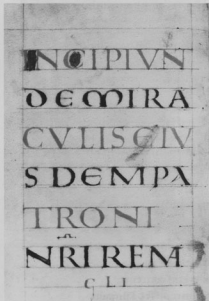 INCIPIUN
DE MIRA
CVLIS EIV
SDEMPA
TRONI
NRI REM
CLI